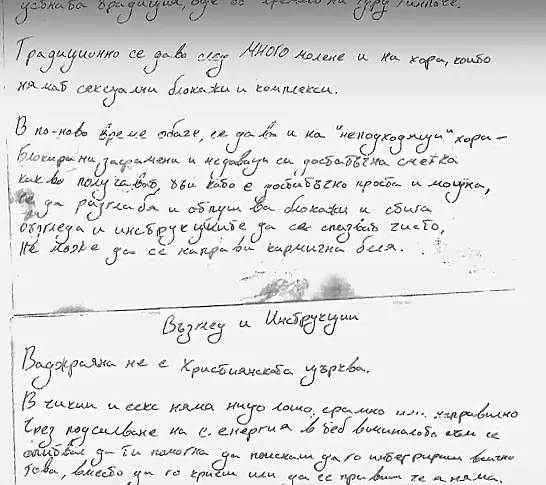 устната традиция, още от времето на Гуру Ринпоче.
Традиционно се дава след МНОГО молене и на хора, които
нямат сексуални блокажи и комплекси.
В по-ново време обаче, се дава и на "неподходящи" хора -
блокирани, засрамени и недаващи си достатъчна сметка
какво получават, тъй като е достатъчно проста и мощна,
че да разглабя и отпушва блокажи и стига
възгледа и инструкциите да се спазват чисто,
не може да се направи кармична беля.
Възглед и Инструкции
Ваджраяна не е Християнската църква.
В чикии и секс няма нищо лошо, срамно или неправилно
Чрез подсилване на с. енергия в теб винаги съм се
опитвал да ти помогна да поискаш да го интегрираш всичко
това, вместо да го криеш или да се правиш че я няма.